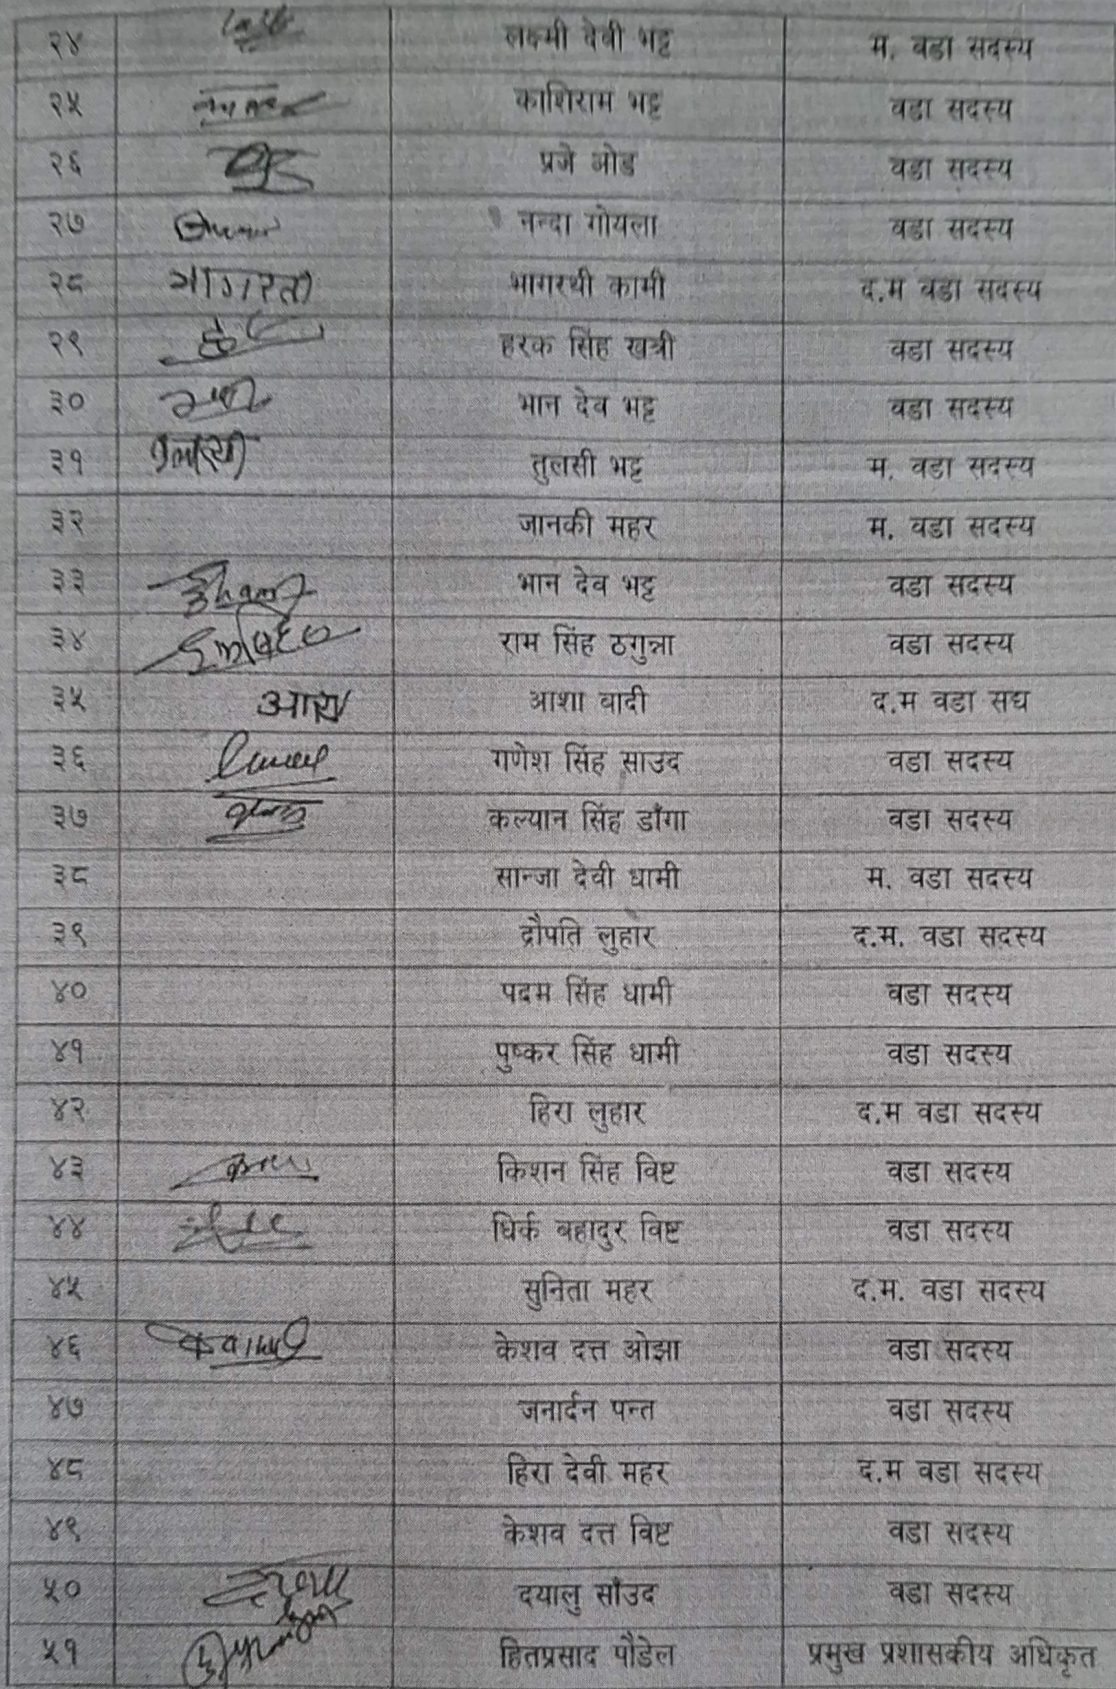 २४ लक्ष्मी देवी भट्ट म. वडा सदस्य
२५ काशिराम भट्ट वडा सदस्य
२६ प्रजे ओड वडा सदस्य
२७ नन्दा गोयला वडा सदस्य
२८ भागरती भागरथी कामी द.म वडा सदस्य
२९ हरक सिंह खत्री वडा सदस्य
३० भान देव भट्ट वडा सदस्य
३१ तुलसी भट्ट म. वडा सदस्य
३२ जानकी महर म. वडा सदस्य
३३ भान देव भट्ट वडा सदस्य
३४ राम सिंह ठगुन्ना वडा सदस्य
३५ आशा वादी द.म वडा सद्य
३६ गणेश सिंह साउद वडा सदस्य
३७ कल्यान सिंह डाँगा वडा सदस्य
३८ सान्जा देवी धामी म. वडा सदस्य
३९ द्रौपति लुहार द.म. वडा सदस्य
४० पदम सिंह धामी वडा सदस्य
४१ पुष्कर सिंह धामी वडा सदस्य
४२ हिरा लुहार द.म वडा सदस्य
४३ किशन सिंह विष्ट वडा सदस्य
४४ धिर्क बहादुर विष्ट वडा सदस्य
४५ सुनिता महर द.म. वडा सदस्य
४६ केशव दत्त ओझा वडा सदस्य
४७ जनार्दन पन्त वडा सदस्य
४८ हिरा देवी महर द.म वडा सदस्य
४९ केशव दत्त विष्ट वडा सदस्य
५० दयालु साँउद वडा सदस्य
५१ हितप्रसाद पौडेल प्रमुख प्रशासकीय अधिकृत